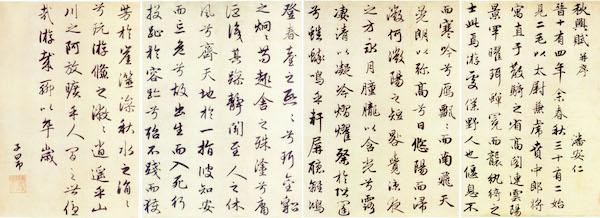 秋興賦 并序
潘安仁
晉十有四年余春秋三十有二始
見二毛以太尉兼虎賁中郎將
寓直于散騎之省高閣連雲陽
景罕曜珥蟬冕而襲紈綺之
士此焉游處僕野人也偃息不
而寒吟兮雁飄飄而南飛天
晃朗以彌高兮日悠陽而浸
微何微陽之短晷覺涼夜
之方永月朣朧以含光兮露
凄清以凝冷熠燿粲於階闥
兮蟋蟀鳴乎軒屏聽離鴻
登春臺之熙熙兮珥金貂
之炯炯苟趣舍之殊塗兮庸
詎識其躁靜聞至人之休
風兮齊天地於一指彼知安
而忘危兮故出生而入死行
投趾於容跡兮殆不踐而獲
芳於崖澨澡秋水之涓涓
兮玩游儵之潎潎逍遙乎山
川之阿放曠乎人間之世優
哉游哉聊以卒歲
子昂